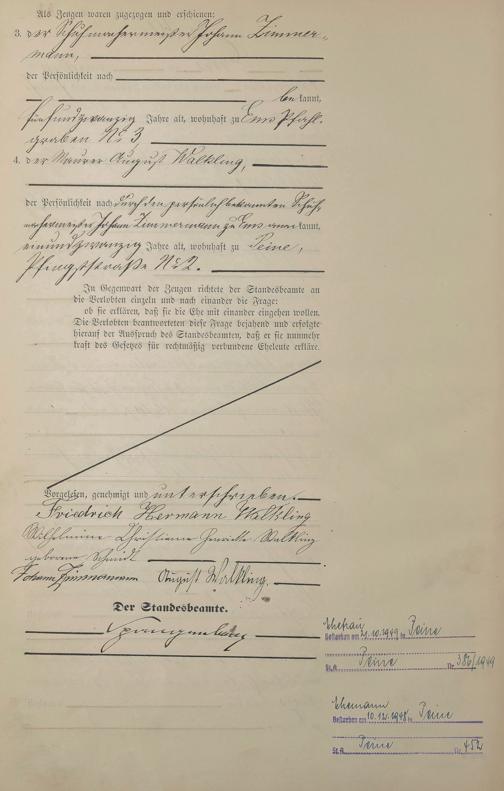 Als Zeugen waren zugezogen und erschienen:
3. der Schuhmachermeister Johann Zimmer-
mann,
der Persönlichkeit nach
be kannt,
fünfundzwanzig Jahre alt, wohnhaft zu Ems Pfahl-
graben No 3
4. der Maurer August Walkling,
der Persönlichkeit nach durch den persönlich bekannten Schuh-
machermeister Johann Zimmermann zu Ems anerkannt,
einundzwanzig Jahre alt, wohnhaft zu Peine,
Pfingststraße No 2.
In Gegenwart der Zeugen richtete der Standesbeamte an
die Verlobten einzeln und nach einander die Frage:
ob sie erklären, daß sie die Ehe mit einander eingehen wollen.
Die Verlobten beantworteten diese Frage bejahend und erfolgte
hierauf der Ausspruch des Standesbeamten, daß er sie nunmehr
kraft des Gesetzes für rechtmäßig verbundene Eheleute erkläre.
Vorgelesen, genehmigt und unterschrieben.
Friedrich Hermann Walkling
Wilhelmine Christiane Henriette Walkling
geborene Schmidt
Johann Zimmermann August Walkling.
Der Standesbeamte.
Spangenberg
Ehefrau
Gestorben am 21.10.1949 in Peine
St.A. Peine Nr. 386/1949
Ehemann
Gestorben am 10.12.1948 in Peine
St.A. Peine Nr. 452